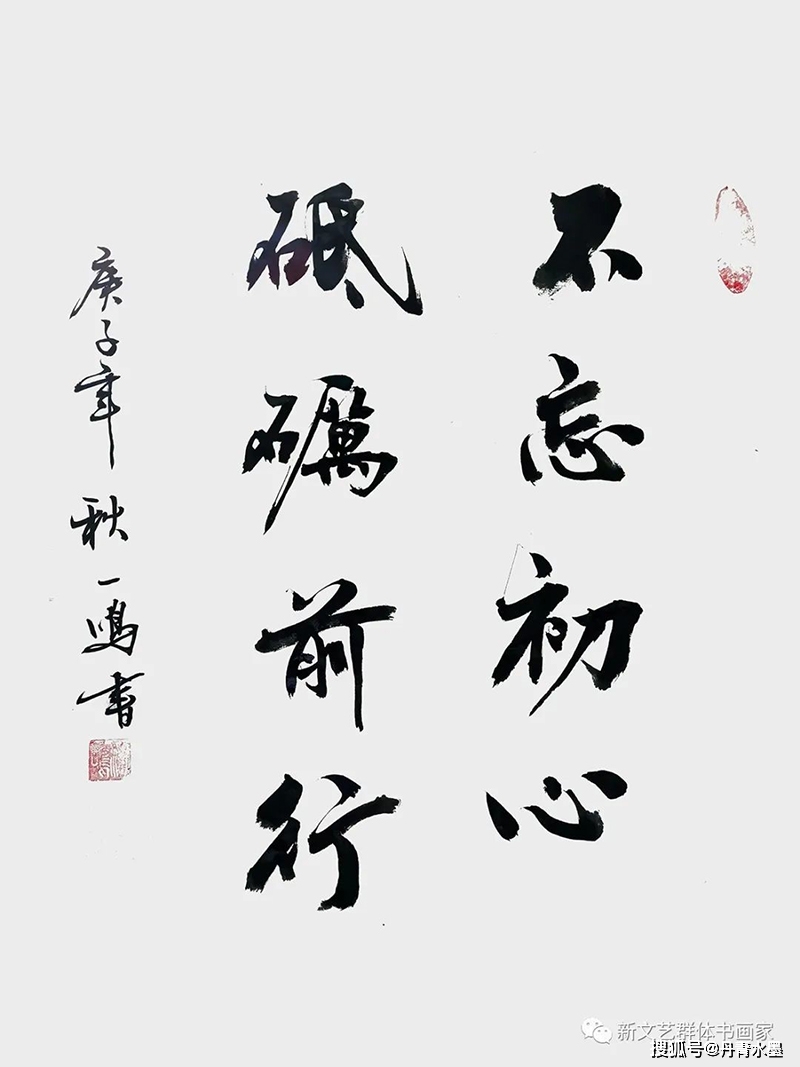 不忘初心
砥礪前行
庚子年 秋一鳴書
新文艺群体书画家
搜狐号@丹青水墨